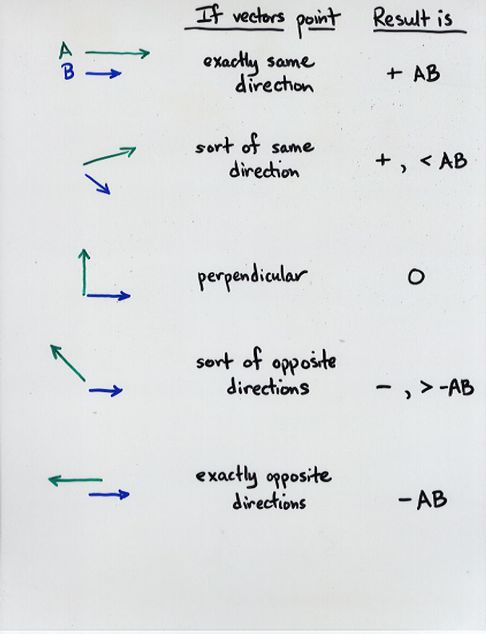 If vectors point Result is
A
B
exactly same
direction
+ AB
sort of same
direction
+ , < AB
perpendicular
0
sort of opposite
directions
- , > -AB
exactly opposite
directions
- AB